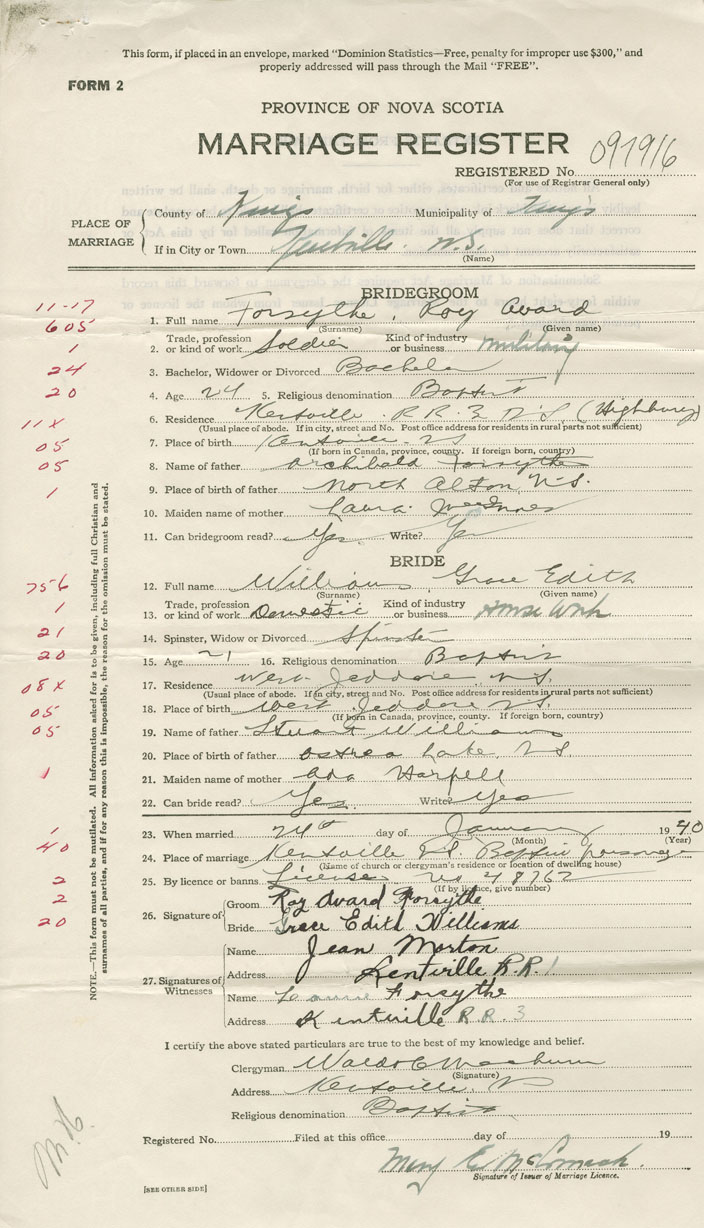 This form, if placed in an envelope, marked "Dominion Statistics—Free, penalty for improper use $300," and
properly addressed will pass through the Mail "FREE".
FORM 2
PROVINCE OF NOVA SCOTIA
MARRIAGE REGISTER
REGISTERED No. 091916
(For use of Registrar General only)
PLACE OF MARRIAGE
County of Kings Municipality of Kings
If in City or Town Kentville. N.S.
(Name)
BRIDEGROOM
11-17
1. Full name Forsythe, Roy Avard
(Surname) (Given name)
605
Trade, profession Kind of industry
2. or kind of work Soldier or business military
1
3. Bachelor, Widower or Divorced Bachelor
24
4. Age 24 5. Religious denomination Baptist
20
6. Residence Kentville R.R. 3 N.S. (Highbury)
(Usual place of abode. If in city, street and No. Post office address for residents in rural parts not sufficient)
11X
7. Place of birth Kentville. NS
(If born in Canada, province, county. If foreign born, country)
05
8. Name of father Archibald Forsythe
05
9. Place of birth of father North Alton, N.S.
1
10. Maiden name of mother Laura
11. Can bridegroom read? Yes. Write? Yes
BRIDE
756
12. Full name Williams, Grace Edith
(Surname) (Given name)
1
Trade, profession Kind of industry
13. or kind of work Domestic or business House Work
21
14. Spinster, Widow or Divorced Spinster
20
15. Age 21 16. Religious denomination Baptist
08X
17. Residence West Jeddore, N.S.
(Usual place of abode. If in city, street and No. Post office address for residents in rural parts not sufficient)
05
18. Place of birth West Jeddore N.S.
(If born in Canada, province, county. If foreign born, country)
05
19. Name of father Stuart Williams
20. Place of birth of father Ostrea Lake, N.S
1
21. Maiden name of mother Ada Harpell
22. Can bride read? Yes. Write? Yes
1
23. When married 24th day of January 1940
(Month) (Year)
40
24. Place of marriage Kentville N.S. Baptist parsonage
(Name of church or clergyman's residence or location of dwelling house)
2
25. By licence or banns License No 48762
(If by licence, give number)
2
26. Signature of Groom Roy Avard Forsythe
20
Bride Grace Edith Williams
27. Signatures of Witnesses
Name Jean Morton
Address Kentville R.R. 1
Name Forsythe
Address Kentville R.R. 3
NOTE.—This form must not be mutilated. All information asked for is to be given, including full Christian and
surnames of all parties, and if for any reason this is impossible, the reason for the omission must be stated.
I certify the above stated particulars are true to the best of my knowledge and belief.
Clergyman Waldo C Machum
(Signature)
Address Kentville. N
Religious denomination Baptist
Registered No. Filed at this office day of 19
Mary E. McCormack.
Signature of Issuer of Marriage Licence.
[SEE OTHER SIDE]